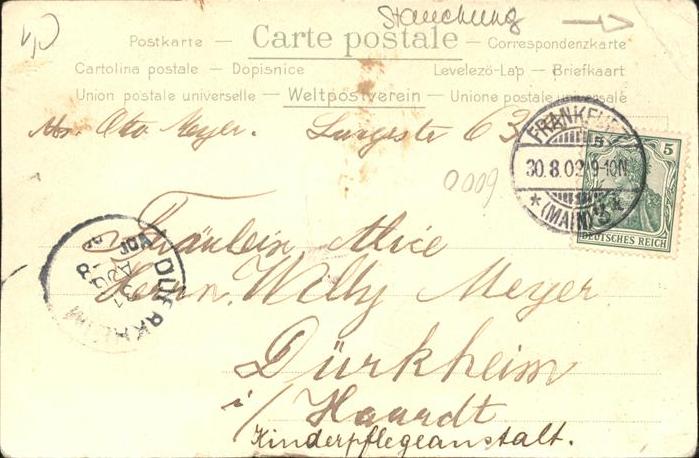 Stauchung
Postkarte — Carte postale — Correspondenzkarte
Cartolina postale — Dopisnice Levelező-Lap — Briefkaart
Union postale universelle — Weltpostverein — Unione postale universale
Otto Meyer. 63
FRANKFURT
30.8.02. 9-10N.
* (MAIN) *
5
DEUTSCHES REICH
0009
Fräulein Alice
Herrn Willy Meyer
DUERKHEIM
AUG
8
Dürkheim
i/ Haardt
Kinderpflegeanstalt.